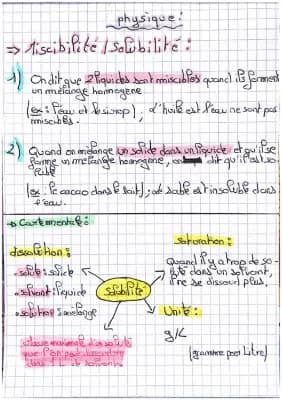 physique :
⇒ Miscibilité / Solubilité :
1) On dit que 2 liquides sont miscibles quand ils forment
un mélange homogène
(ex : l'eau et le sirop), d'huile est l'eau ne sont pas
miscibles.
2) Quand on mélange un solide dans un liquide et qu'il se
forme un mélange homogène, on dit qu'il est so-
luble
(ex : le cacao dans le lait), le sable est insoluble dans
l'eau.
→ Carte mentale :
dissolution :
- soluté : solide
- solvant : liquide
- solution : mélange
Solubilité
saturation :
Quand il y a trop de so-
luté dans un solvant,
il ne se dissout plus.
Unité :
g/L
(gramme par Litre)
masse maximale de soluté
que l'on peut dissoudre
dans 1 L de solvant